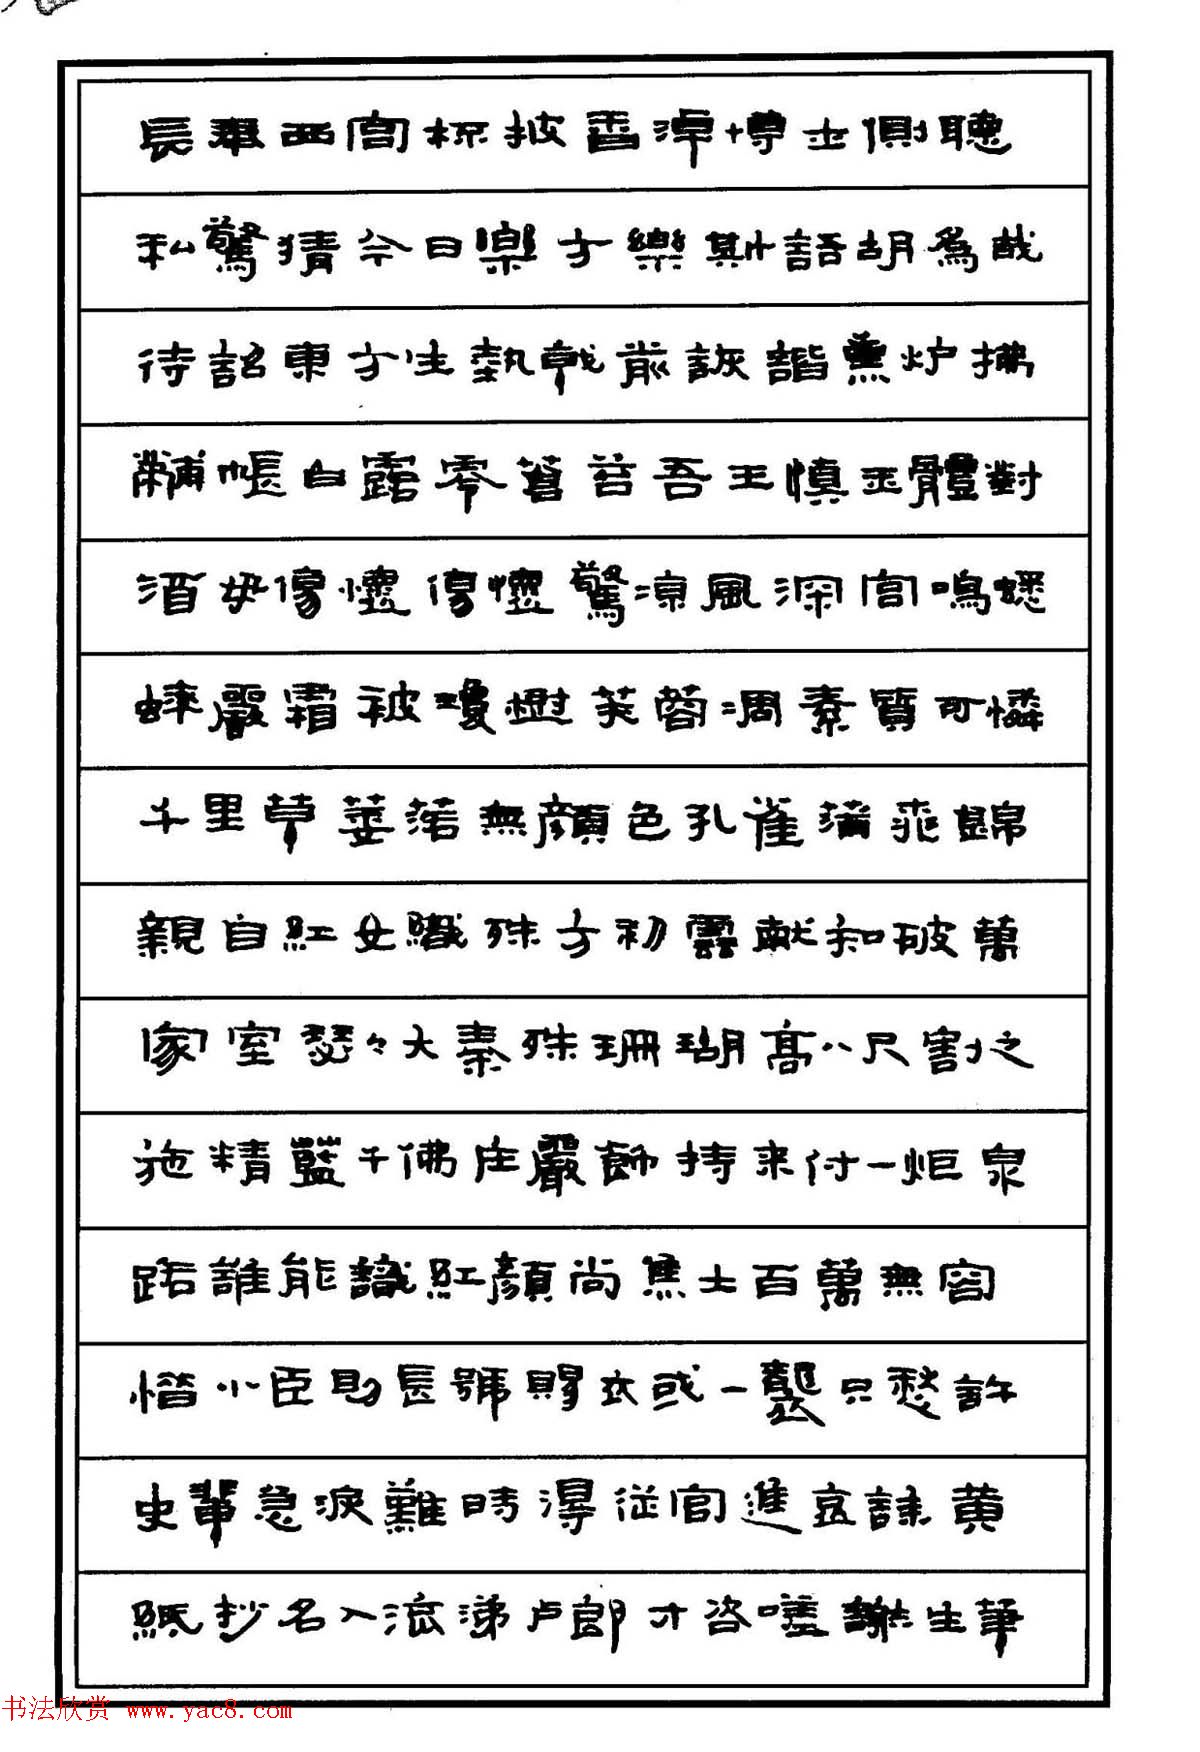 長奉西宮杯披香淖博士側聽
私驚猜今日樂方樂斯語胡為哉
待詔東方生執戟前詼諧熏炉拂
黼帳白露零蒼苔吾王慎玉體對
酒毋傷懷傷懷驚涼風深宮鳴蟋
蟀嚴霜被瓊樹芙蓉凋素質可憐
千里草萎落無顏色孔雀蒲桃錦
親自紅女織殊方初雲献知破萬
家室瑟々大秦珠珊瑚高八尺割之
施精藍千佛庄嚴飾持来付一炬泉
路誰能識紅顏尚焦土百萬無容
惜小臣助長號賜衣或一襲只愁許
史輩急淚難時得從官進哀誄黄
紙抄名入流涕卢郎才咨嗟謝生筆
书法欣赏 www.yac8.com